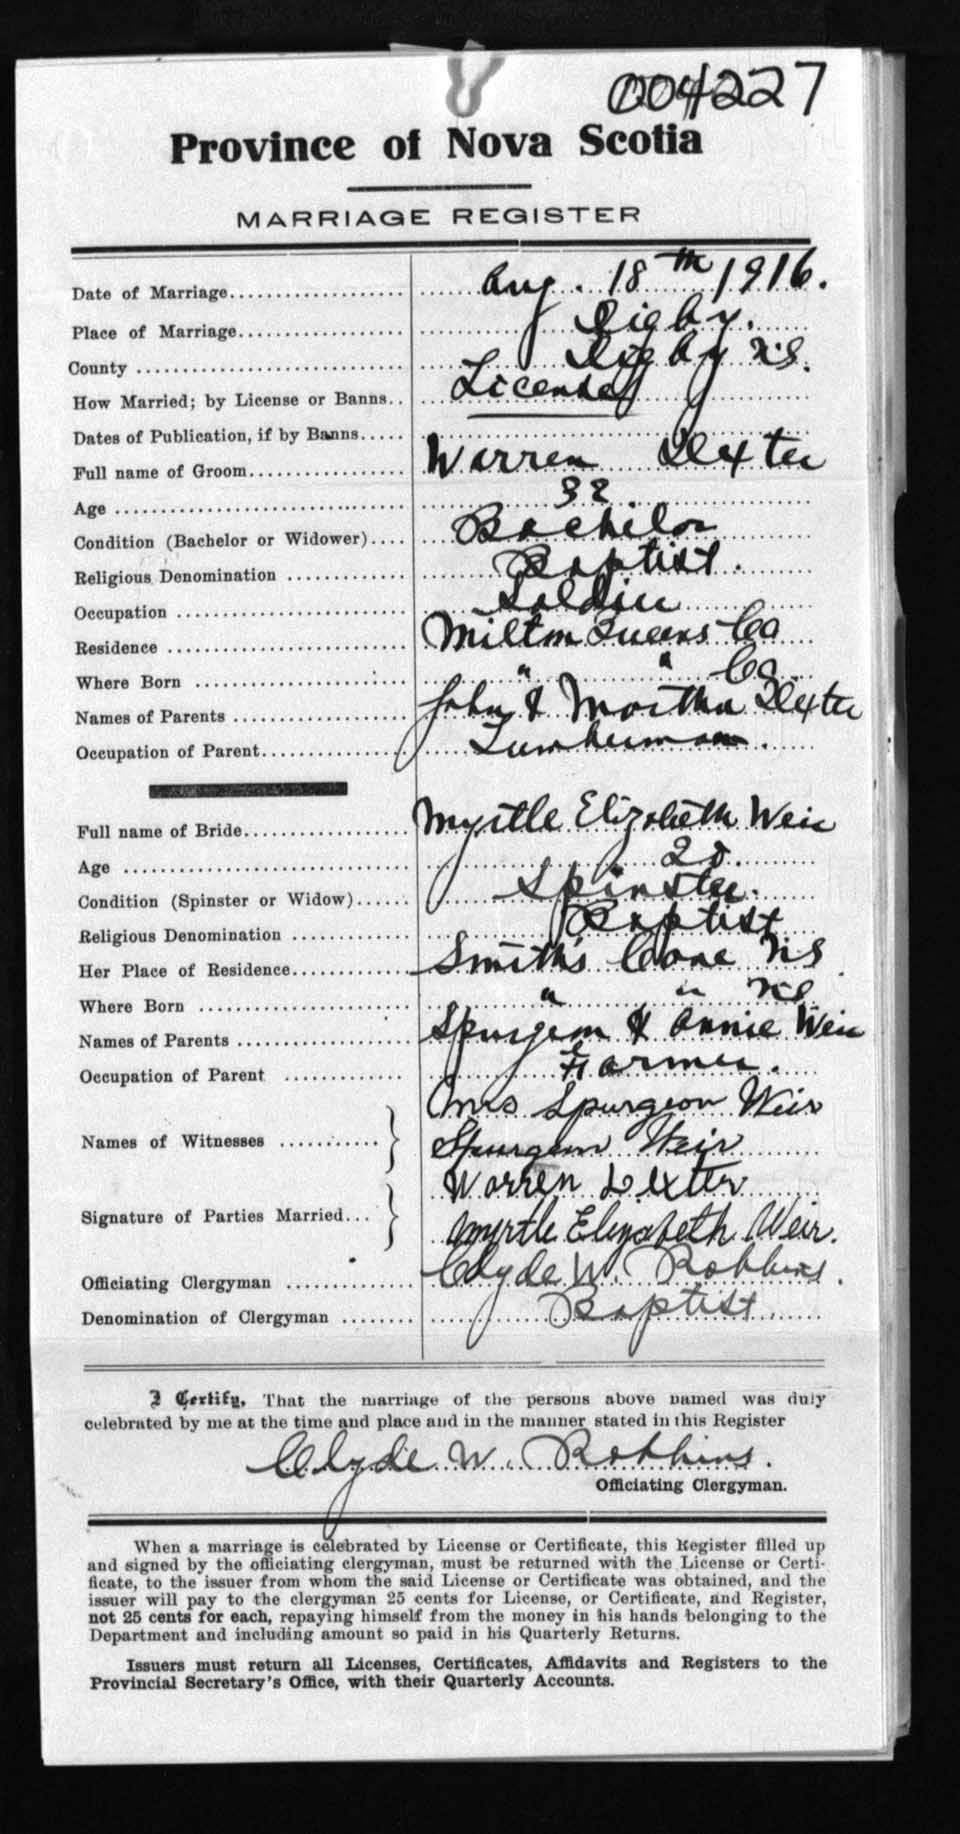 004227
Province of Nova Scotia
MARRIAGE REGISTER
Date of Marriage.................... Aug. 18th 1916.
Place of Marriage................... Digby.
County ............................. Digby N.S.
How Married; by License or Banns.. License
Dates of Publication, if by Banns.....
Full name of Groom.................. Warren Dexter
Age ................................
Condition (Bachelor or Widower).... Bachelor
Religious Denomination ............. Baptist.
Occupation ......................... Soldier
Residence .......................... Milton Queens Co
Where Born ......................... " " Co.
Names of Parents ................... John & Martha Dexter
Occupation of Parent................ Lumberman.
Full name of Bride.................. Myrtle Elizabeth Weir
Age ................................
Condition (Spinster or Widow)...... Spinster.
Religious Denomination ............. Baptist
Her Place of Residence.............. Smith's Cove N.S
Where Born ......................... " " N.S
Names of Parents ................... Spurgeon & Annie Weir
Occupation of Parent ............... Farmer.
Names of Witnesses ............ } Mrs Spurgeon Weir
Spurgeon Weir
Signature of Parties Married... } Warren Dexter
Myrtle Elizabeth Weir.
Officiating Clergyman .............. Clyde W. Robbins.
Denomination of Clergyman ........ Baptist
I Certify, That the marriage of the persons above named was duly
celebrated by me at the time and place and in the manner stated in this Register
Clyde W. Robbins.
Officiating Clergyman.
When a marriage is celebrated by License or Certificate, this Register filled up
and signed by the officiating clergyman, must be returned with the License or Certi-
ficate, to the issuer from whom the said License or Certificate was obtained, and the
issuer will pay to the clergyman 25 cents for License, or Certificate, and Register,
not 25 cents for each, repaying himself from the money in his hands belonging to the
Department and including amount so paid in his Quarterly Returns.
Issuers must return all Licenses, Certificates, Affidavits and Registers to the
Provincial Secretary's Office, with their Quarterly Accounts.